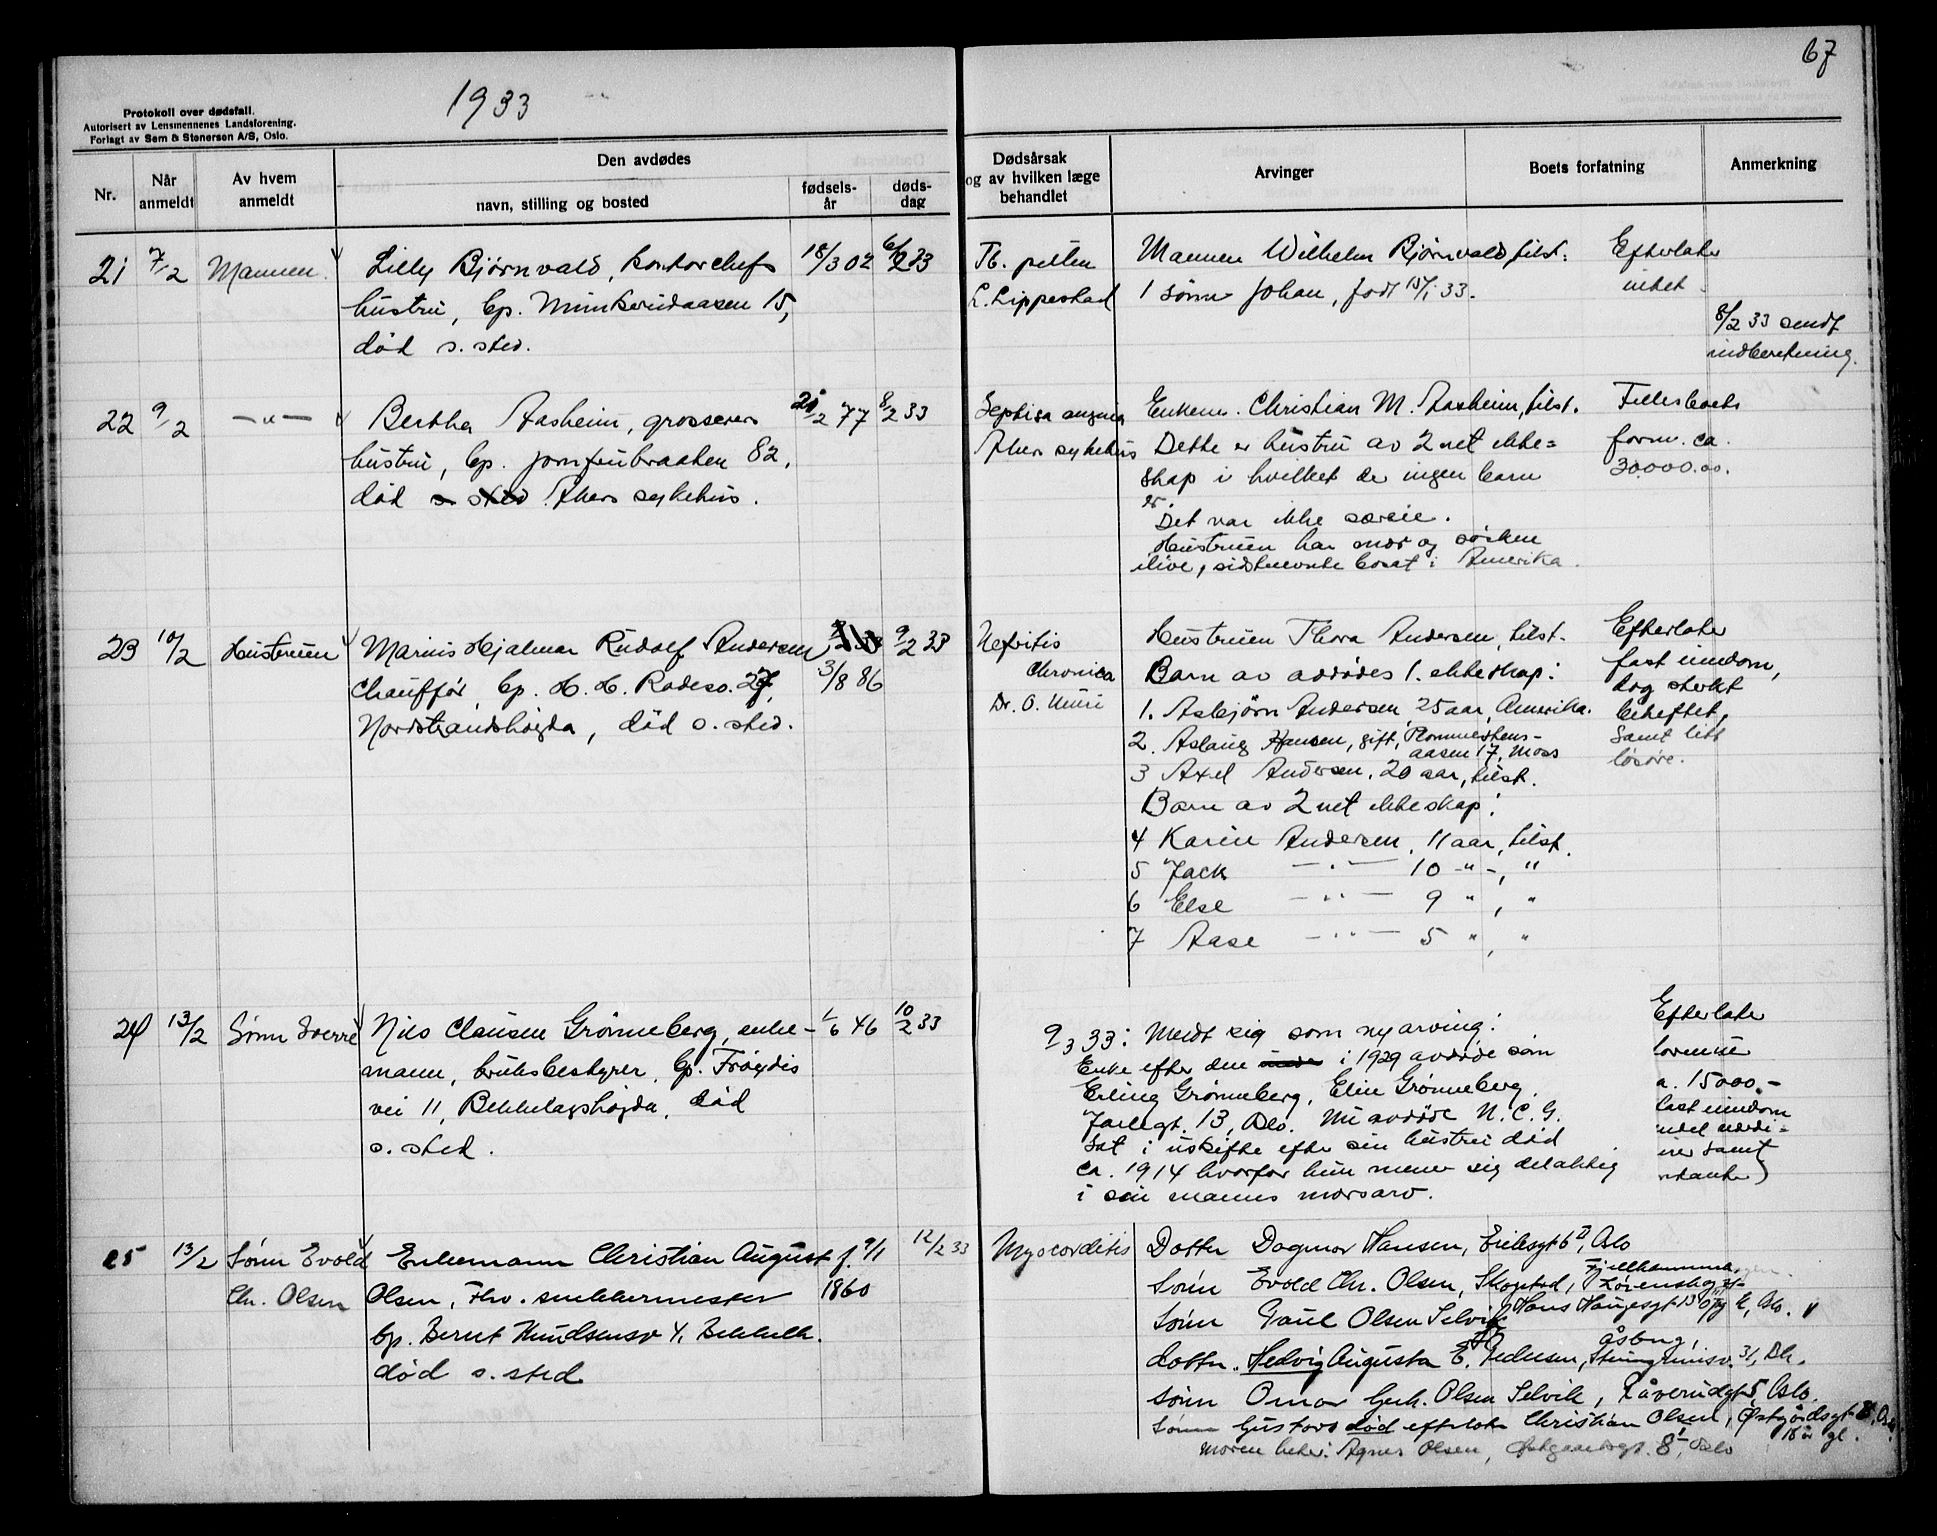 67
1933
Protokoll over dødsfall.
Autorisert av Lensmennenes Landsforening.
Forlagt av Sem & Stenersen A/S, Oslo.
Nr.
Når anmeldt
Av hvem anmeldt
Den avdødes
navn, stilling og bosted
fødsels-år
døds-dag
Dødsårsak og av hvilken læge behandlet
Arvinger
Boets forfatning
Anmerkning
21 7/2 Mannen. Lilly Bjørnvald, kontorchefs 18/3 02 6/2 33
hustru, bp. Munkerudaasen 15,
død s. sted.
Tb. pulm
L. Lippestad
Mannen Wilhelm Bjørnvald, tilst.
1 sønn Johan, født 15/1 33.
Efterlater
intet.
8/2 33 sendt
indberetning.
22 9/2 —"— Bertha Aasheim, grosserers 21/2 77 8/2 33
hustru, bp. Jomfrubraaten 82,
død s sted Akers sykehus.
Septisk angina
Akers sykehus
Enkem. Christian M. Aasheim, tilst.
Dette er hustru av 2net ekte=
skap i hvilket der ingen barn
er.
Det var ikke særeie.
Hustruen har mor og søsken
ilive, sidstnevnte bosat i Amerika.
Fellesboets
form. ca.
30000.00.
23 10/2 Hustruen Marius Hjalmar Rudolf Andersen 9/2 33
Chauffør, bp. H. H. Rodesv. 27, 3/8 86
Nordstrandshøgda, død s. sted.
Nefritis
Chronica
Dr. O.
Hustruen Thora Andersen, tilst.
Barn av avdødes 1. ekteskap:
1. Asbjørn Andersen, 25 aar, Amerika.
2. Aslaug Hansen, gift,
aasen 17, Moss
3 Axel Andersen, 20 aar, tilst.
Barn av 2net ekteskap:
4 Karin Andersen, 11 aar, tilst.
5 Jack —"— 10 -"-, "
6 Else —"— 9 ", "
7 Aase —"— 5 ", "
Efterlater
fast eiendom,
dog sterkt
beheftet,
samt litt
løsøre.
24 13/2 Sønn Sverre Nils Clausen Grønneberg, enke- 1/6 46 10/2 33
mann, bruksbestyrer, bp. Frøydis
vei 11, Bekkelagshøgda, død
s. sted.
9/3 33: Meldt sig som ny arving:
Enke efter den i 1929 avdøde søn
Erling Grønneberg, Elin Grønneberg,
Jarlegt. 13, Oslo. Nu avdøde N. C. G.
sat i uskifte efter sin hustru død
ca. 1914 hvorfor hun mener sig delaktig
i sin manns morsarv.
Efterlater
formue
a. 15000.-
fast eiendom
samt
25 13/2 Sønn Evald Enkemann Christian August f. 9/1 12/2 33
Chr. Olsen Olsen, fhv. snekkermester 1860
bp. Bernt Knudsensv 4, Bekkelh.
død s. sted
Myocorditis
Datter Dagmar Hansen, Eriksgt 6 II, Oslo
Sønn Evald Chr. Olsen, Skogstad, Fjellhammer,
Lørenskog
Sønn Paul Olsen Selvik Hans Haugesgt 13 Oslo.
datter. Hedvig Augusta E. Pedersen,
sønn Omar Gerh. Olsen Selvik, Oslo.
Sønn Gustavs død efterlater Christian Olsen, Østgårdsgt 8, Oslo
18 år gl.
moren heter: Agnes Olsen, Østgaardsgt. 8 I, Oslo